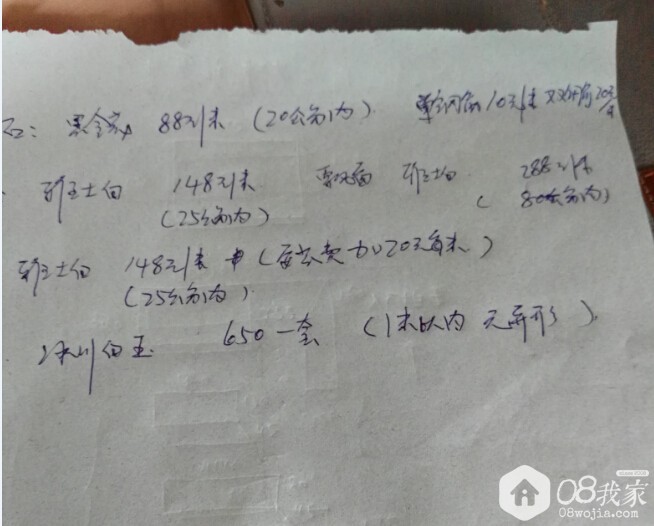 石: 黑金沙 88元/米 (20公分内) 单磨边10元/米 双磨边20元/米
爵士白 148元/米 爵士白 288元/米
(25公分内) (80公分内)
爵士白 148元/米 (安装费加20元每米)
(25公分内)
冰川白玉 650一套 (1米以内 无异形)
08我家
08wojia.com